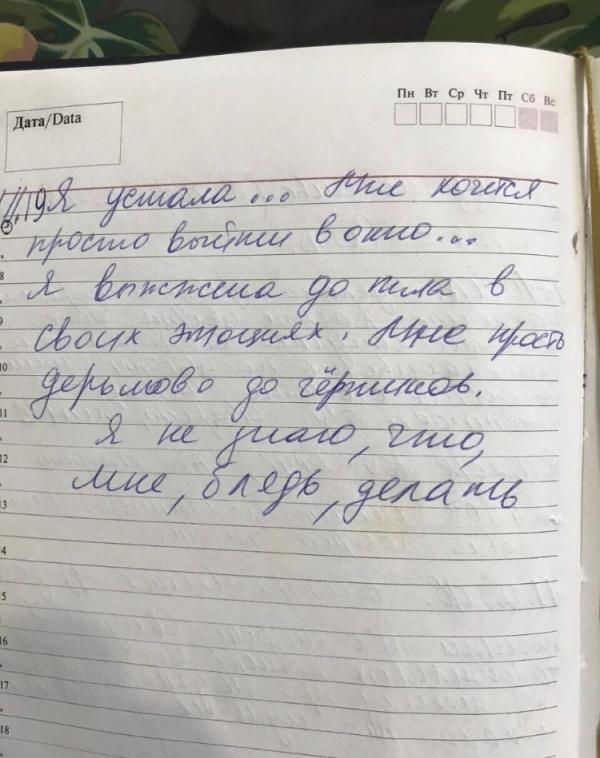 Дата/Data
Пн Вт Ср Чт Пт Сб Вс
Я устала... Мне хочется
просто выйти в окно...
8
Я выжжена до тла в
9
своих эмоциях. Мне прость
10
дерьмово до чёртиков.
11
Я не знаю, что,
12
мне, блядь, делать
13
4
5
16
17
18